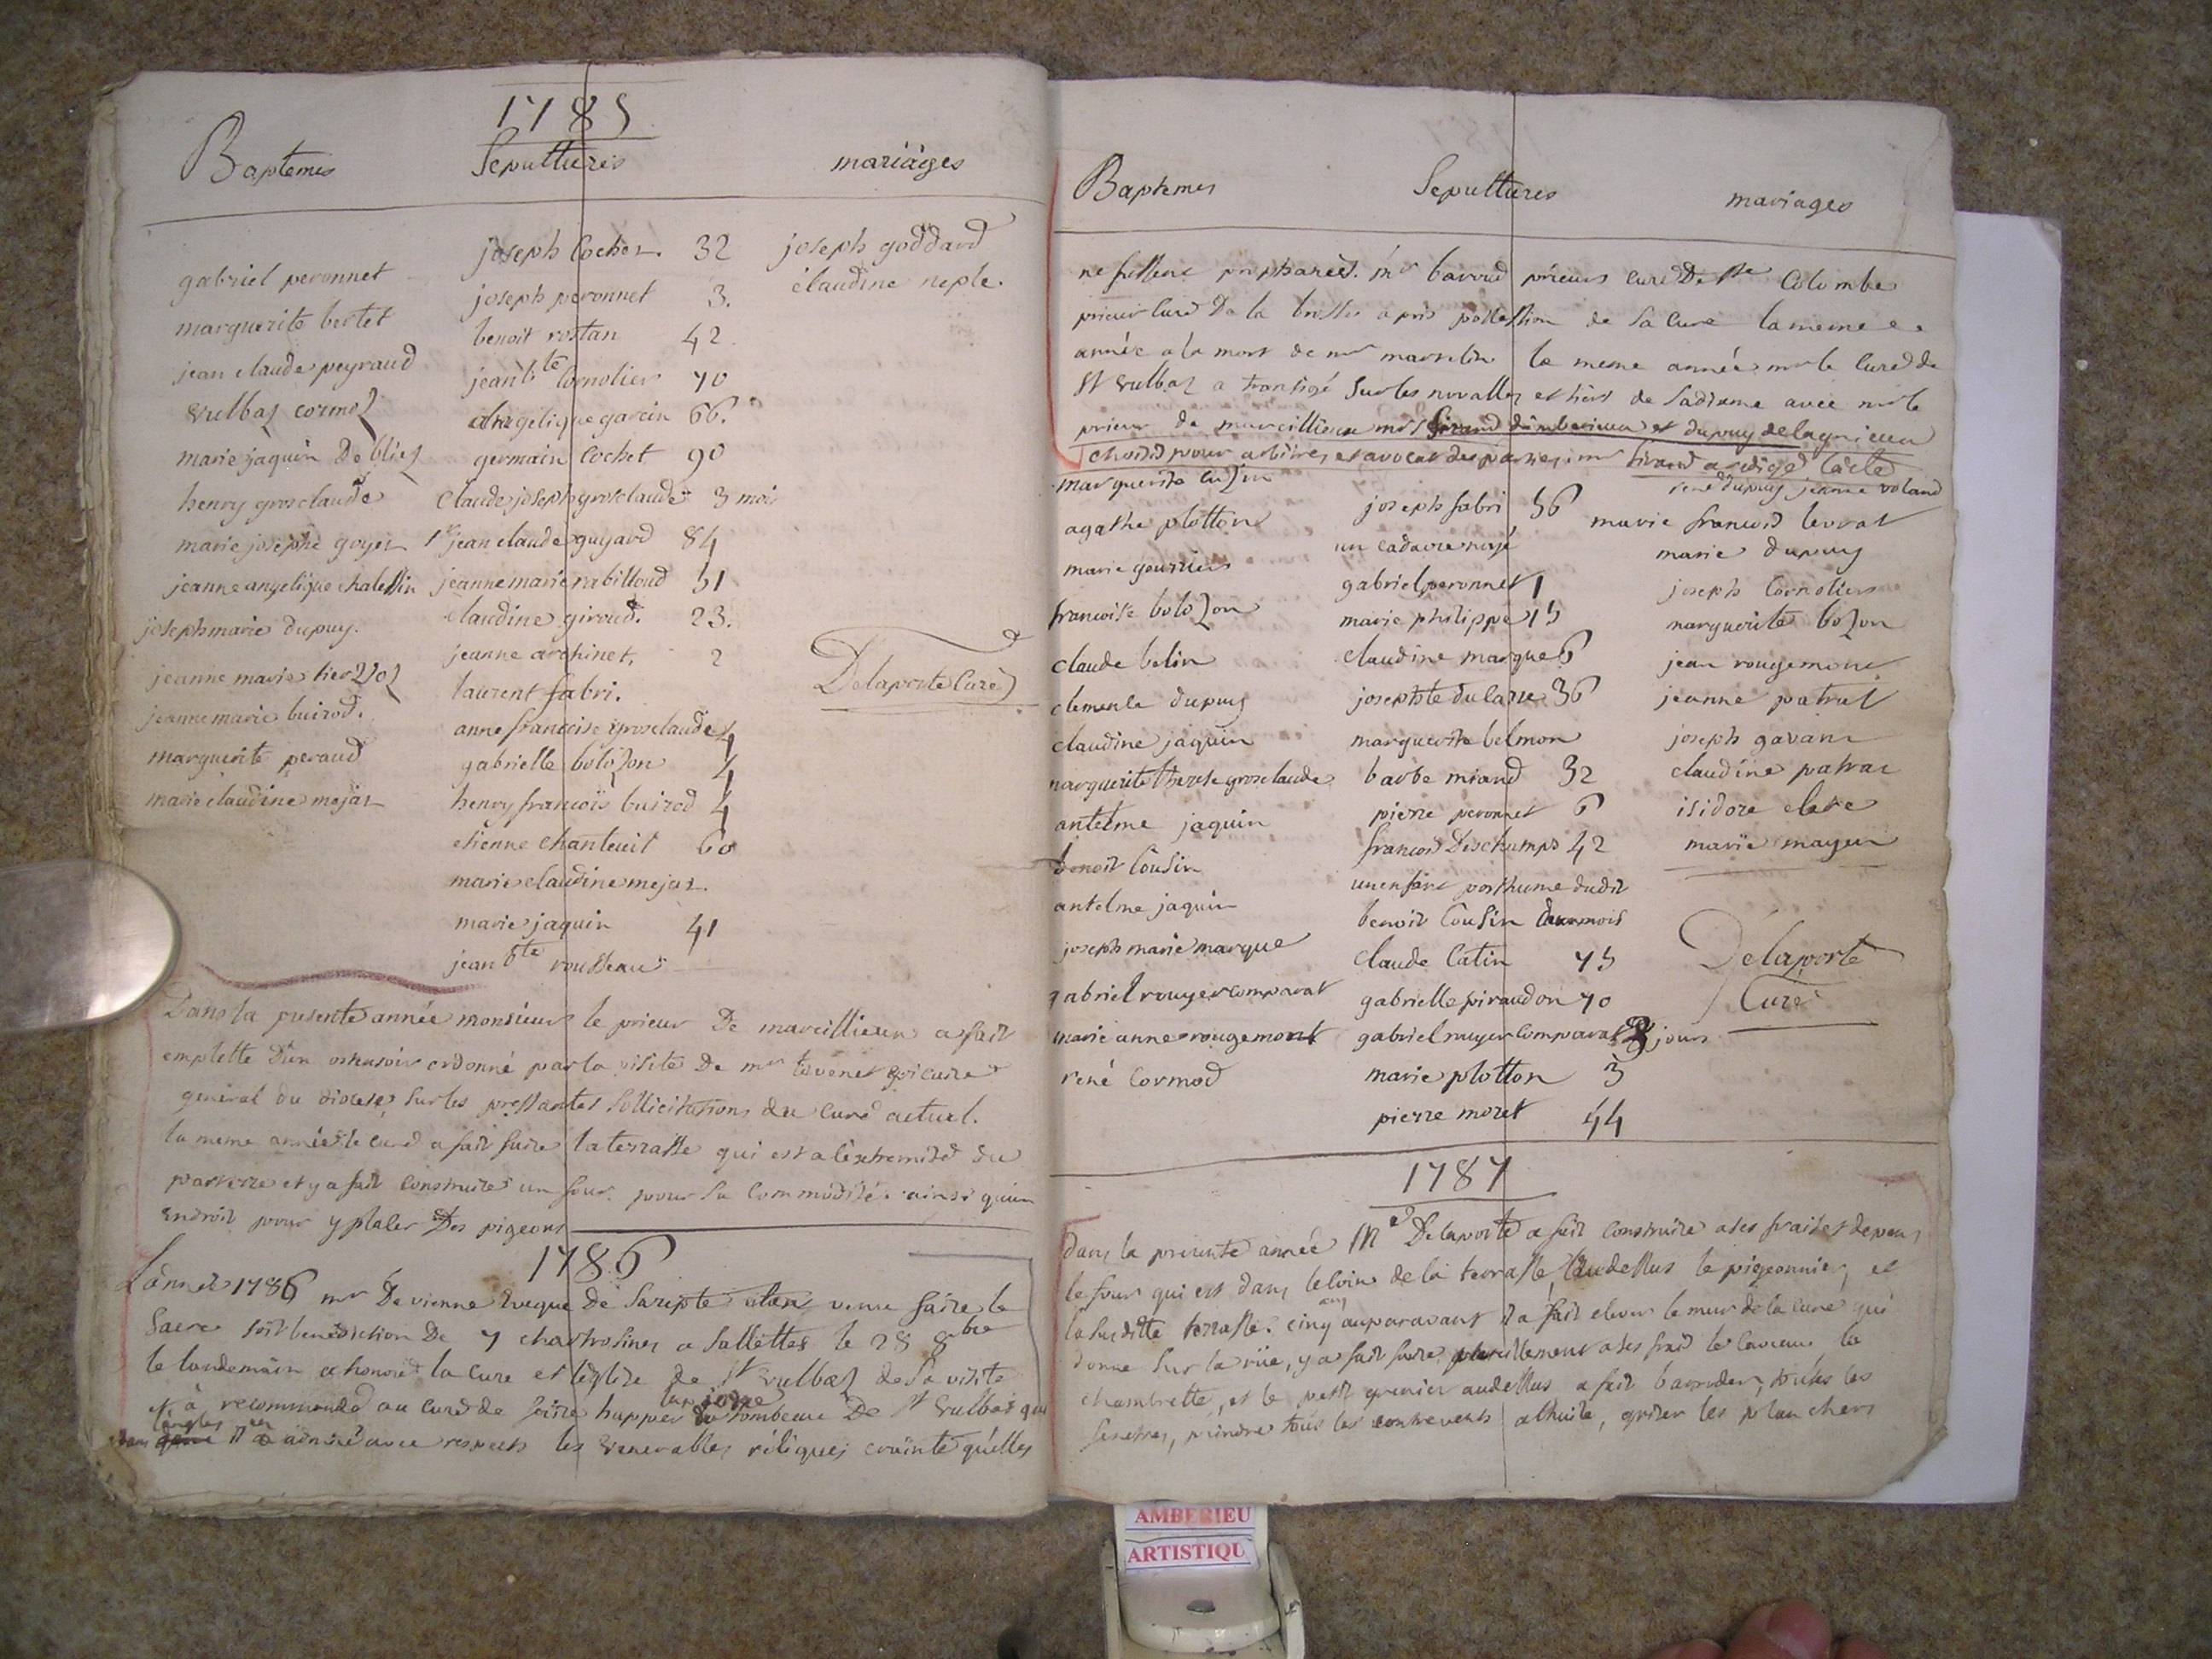 1785
Baptemes Sepultures mariages
joseph Cochet. 32 joseph goddard
gabriel peronnet
joseph peronnet 3. claudine neple.
marguerite bertet
benoit rostan 42.
jean claude peyraud
jean bte Cornolier 70
Vulbaz cormoz
angelique garcin 66.
marie jaquin De bliez
germain Cochet 90
henry grosclaude
Claude joseph grosclaude 3 mois
marie josephe goyet
jean claude guyard 84
jeanne angelique chalessin jeanne marie rabilloud 51
claudine giroud. 23.
joseph marie dupuy.
jeanne archinet. 2
Delaporte Curé
jeanne marie
laurent fabri.
jeanne marie buirod.
anne francoise grosclaude 4
marguerite peraud
gabrielle bolozon 4
marie claudine mejat
henry francois buirod 4
etienne chanteuit 60
marie claudine mejat.
marie jaquin 41
jean bte rousseau
Dans la presente année monsieur le prieur De marcillieux a fait
emplette D'un ostensoir ordonné par la visite De mr vicaire
general du diocese, sur les pressantes sollicitations du curé actuel.
la meme année le curé a fait faire la terrasse qui est a l'extremité du
parterre et y a fait construire un four pour sa commodité. ainsi qu'un
endroit pour y placer Des pigeons
1786
L'année 1786 mr De vienne eveque De Sarepte venu faire le
Sacre soit benediction De 7 chartrosines a Sallettes le 28 8bre
le landemain a honoré la cure et l'eglise de St Vulbaz de sa visite
et a recommandé au curé de faire tombeau De St Vulbas
avec respects les venerables reliques crainte quelles
Baptemes Sepultures mariages
ne fussent prophanées. mr baroud prieur curé De Ste Colombe
prieur curé De la a pris possession de sa Cure la meme
année a la mort de mr marcelin le meme année mr le Curé de
St Vulbaz a transigé sur les novalles et de sa dixme avec mr le
prieur de marcillieux mrs Sirand d'amberieux et dupuy de lagnieu
choisis pour arbitres et avocat des parties. mr Sirand a redigé l'acte
marguerite
rené dupuy jeanne voland
agathe plotton joseph fabri 56 marie francois levrat
un cadavre noyé marie dupuy
marie
gabriel peronnet 1 joseph Cornolier
francoise bolozon marie philippe 15 marguerite bozon
claude belin claudine marque 6 jean rougemont
clemence dupuy joseph 36 jeanne patrat
claudine jaquin marguerite belmon joseph gavant
marguerite therese grosclaude barbe miand 32 claudine patrat
antelme jaquin pierre peronnet 6 isidore
benoit Cousin francois Deschamps 42 marie
un enfant posthume dudit
antelme jaquin benoit Cousin
joseph marie marque Claude Catin 75 Delaporte
gabriel rouyer comparat gabrielle piraudon 70 Curé
marie anne rougemont gabriel rouyer comparat 8 jours
rené Cormod marie plotton 3
pierre moret 44
1787
dans la presente année Mr Delaporte a fait construire a ses frais et depens
le four qui est dans le coin de la terrasse, au dessus le pigeonnier, et
la susditte terrasse. cinq ans auparavant il a fait elever le mur de la cure qui
donne sur la rüe, y a fait faire pareillement a ses frais le caveau, la
chambrette, et le petit grenier au dessus a fait toutes les
fenetres, peindre tous les contrevents a l'huile, griser les planchers
AMBERIEU
ARTISTIQU